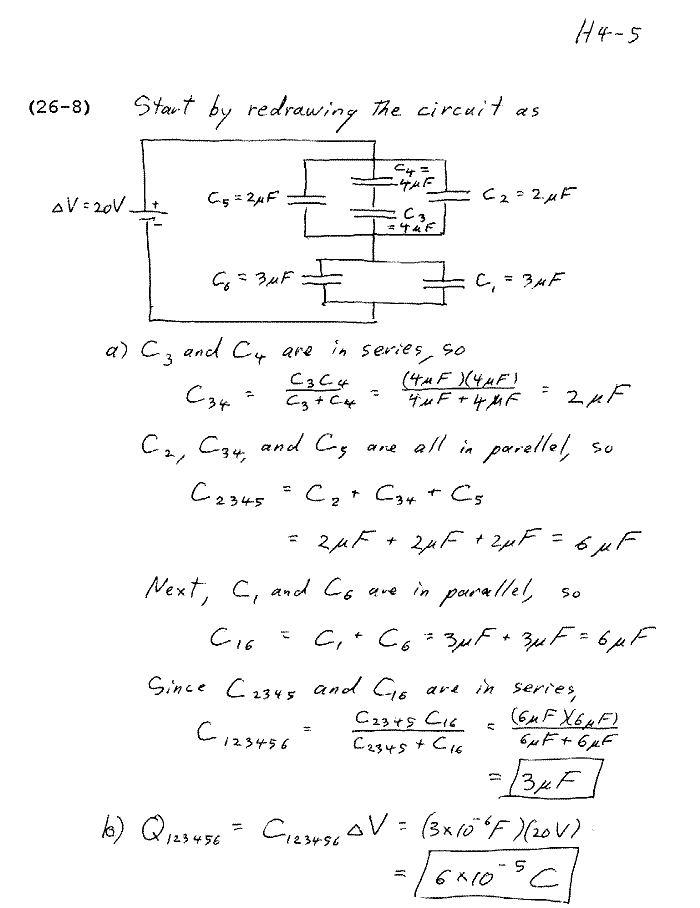 H4-5
(26-8) Start by redrawing the circuit as
C₄ =
4μF
C₅ = 2μF
C₂ = 2μF
ΔV = 20V
+
-
C₃
= 4μF
C₆ = 3μF
C₁ = 3μF
a) C₃ and C₄ are in series, so
C₃₄ = C₃C₄ / C₃ + C₄ = (4μF)(4μF) / 4μF + 4μF = 2μF
C₂, C₃₄, and C₅ are all in parellel, so
C₂₃₄₅ = C₂ + C₃₄ + C₅
= 2μF + 2μF + 2μF = 6μF
Next, C₁ and C₆ are in parallel, so
C₁₆ = C₁ + C₆ = 3μF + 3μF = 6μF
Since C₂₃₄₅ and C₁₆ are in series,
C₁₂₃₄₅₆ = C₂₃₄₅ C₁₆ / C₂₃₄₅ + C₁₆ = (6μF)(6μF) / 6μF + 6μF
= 3μF
b) Q₁₂₃₄₅₆ = C₁₂₃₄₅₆ ΔV = (3×10⁻⁶F)(20V)
= 6×10⁻⁵ C